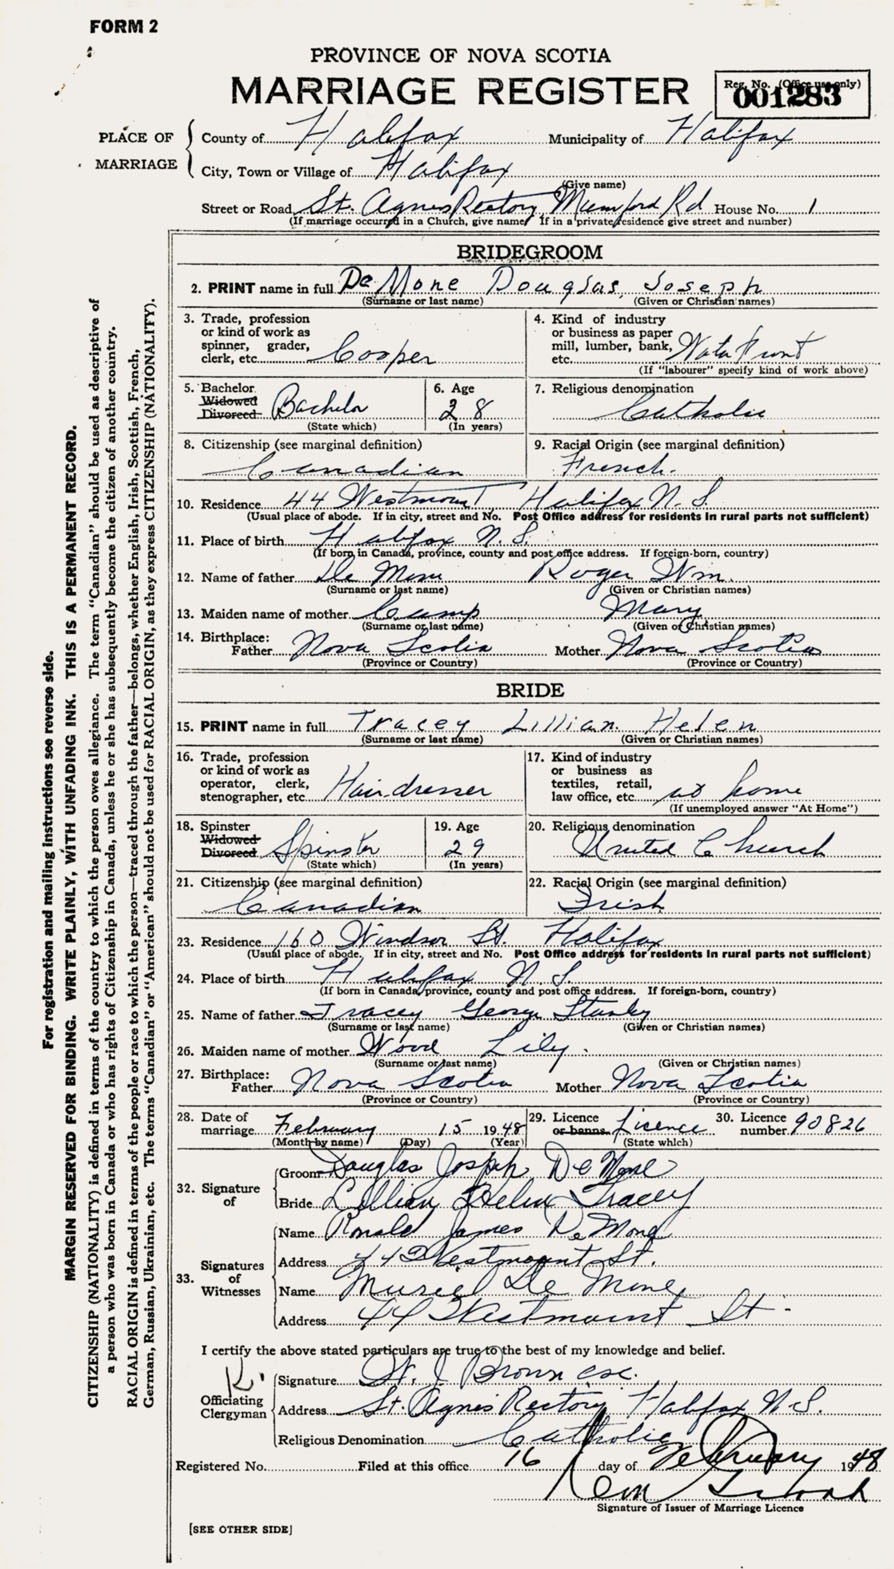 FORM 2
PROVINCE OF NOVA SCOTIA
MARRIAGE REGISTER
Reg. No. (Office use only)
001283
PLACE OF MARRIAGE
County of Halifax Municipality of Halifax
City, Town or Village of Halifax
(Give name)
Street or Road St. Agnes Rectory Mumford Rd House No. 1
(If marriage occurred in a Church, give name) If in a private residence give street and number)
BRIDEGROOM
2. PRINT name in full DeMone Douglas, Joseph
(Surname or last name) (Given or Christian names)
3. Trade, profession or kind of work as spinner, grader, clerk, etc. Cooper
4. Kind of industry or business as paper mill, lumber, bank, etc.
(If "labourer" specify kind of work above)
5. Bachelor Widowed Divorced Bachelor
(State which)
6. Age 28
(In years)
7. Religious denomination
Catholic
8. Citizenship (see marginal definition)
Canadian
9. Racial Origin (see marginal definition)
French.
10. Residence 44 Westmount Halifax N.S.
(Usual place of abode. If in city, street and No. Post Office address for residents in rural parts not sufficient)
11. Place of birth Halifax N.S.
(If born in Canada, province, county and post office address. If foreign-born, country)
12. Name of father De Mone Roger Wm.
(Surname or last name) (Given or Christian names)
13. Maiden name of mother Camp Mary
(Surname or last name) (Given or Christian names)
14. Birthplace: Father Nova Scotia Mother Nova Scotia
(Province or Country) (Province or Country)
BRIDE
15. PRINT name in full Tracey Lillian Helen
(Surname or last name) (Given or Christian names)
16. Trade, profession or kind of work as operator, clerk, stenographer, etc. Hairdresser
17. Kind of industry or business as textiles, retail, law office, etc. at home
(If unemployed answer "At Home")
18. Spinster Widowed Divorced Spinster
(State which)
19. Age 29
(In years)
20. Religious denomination
United Church
21. Citizenship (see marginal definition)
Canadian
22. Racial Origin (see marginal definition)
Irish
23. Residence 160 Windsor St. Halifax
(Usual place of abode. If in city, street and No. Post Office address for residents in rural parts not sufficient)
24. Place of birth Halifax N.S.
(If born in Canada, province, county and post office address. If foreign-born, country)
25. Name of father Tracey George Stanley
(Surname or last name) (Given or Christian names)
26. Maiden name of mother Wood Lily.
(Surname or last name) (Given or Christian names)
27. Birthplace: Father Nova Scotia Mother Nova Scotia
(Province or Country) (Province or Country)
28. Date of marriage February 15 1948
(Month by name) (Day) (Year)
29. Licence or banns Licence
(State which)
30. Licence number 90826
32. Signature of
Groom Douglas Joseph DeMone
Bride Lillian Helen Tracey
33. Signatures of Witnesses
Name Ronald James DeMone
Address 44 Westmount St.
Name Muriel De Mone
Address 44 Westmount St.
I certify the above stated particulars are true to the best of my knowledge and belief.
Officiating Clergyman
Signature J Brown
Address St. Agnes Rectory Halifax N.S.
Religious Denomination Catholic
Registered No. Filed at this office 16 day of February 1948
Signature of Issuer of Marriage Licence
[SEE OTHER SIDE]
For registration and mailing instructions see reverse side.
MARGIN RESERVED FOR BINDING. WRITE PLAINLY, WITH UNFADING INK. THIS IS A PERMANENT RECORD.
CITIZENSHIP (NATIONALITY) is defined in terms of the country to which the person owes allegiance. The term "Canadian" should be used as descriptive of
a person who was born in Canada or who has rights of Citizenship in Canada, unless he or she has subsequently become the citizen of another country.
RACIAL ORIGIN is defined in terms of the people or race to which the person—traced through the father—belongs, whether English, Irish, Scottish, French,
German, Russian, Ukrainian, etc. The terms "Canadian" or "American" should not be used for RACIAL ORIGIN, as they express CITIZENSHIP (NATIONALITY).